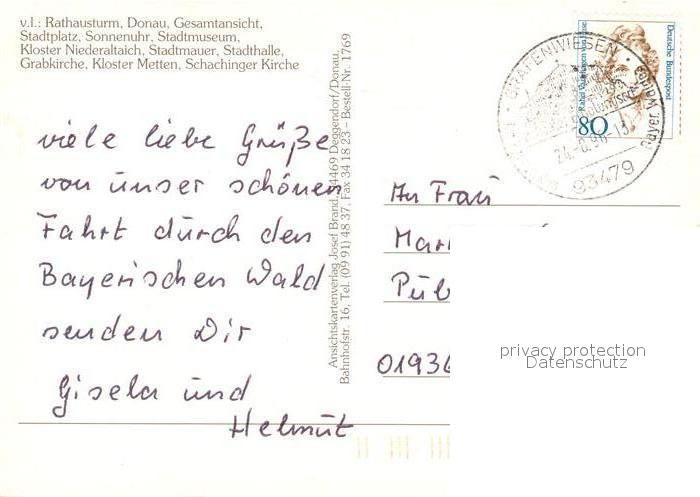 v.l.: Rathausturm, Donau, Gesamtansicht,
Stadtplatz, Sonnenuhr, Stadtmuseum,
Kloster Niederaltaich, Stadtmauer, Stadthalle,
Grabkirche, Kloster Metten, Schachinger Kirche
viele liebe Grüße
von unser schönen
Fahrt durch den
Bayerischen Wald
senden Dir
Gisela und
Helmut
Ansichtskartenverlag Josef Brand, 94469 Deggendorf/Donau,
Bahnhofstr. 16, Tel. (09 91) 48 37, Fax 34 18 23 - Bestell-Nr. 1769
GRAFENWIESEN
Bayer. Wald
93479
Deutsche Bundespost
Rahel Varnhagen von Ense
80
An Frau
Mar
Püb
01936
privacy protection
Datenschutz